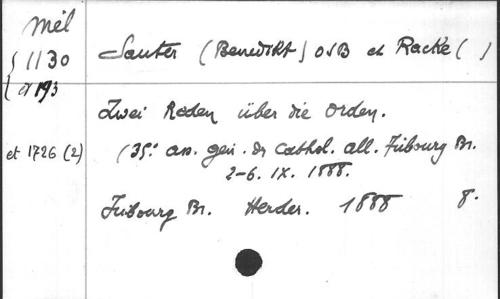 Mél
1130
et 193
et 1726 (2)
Sauter (Benedikt) OSB et Racke ( )
Zwei Reden über die Orden.
(35.º as. gén. ds cathol. all. Fribourg Br.
2-6. IX. 1888.
Fribourg Br. Herder. 1888 8.